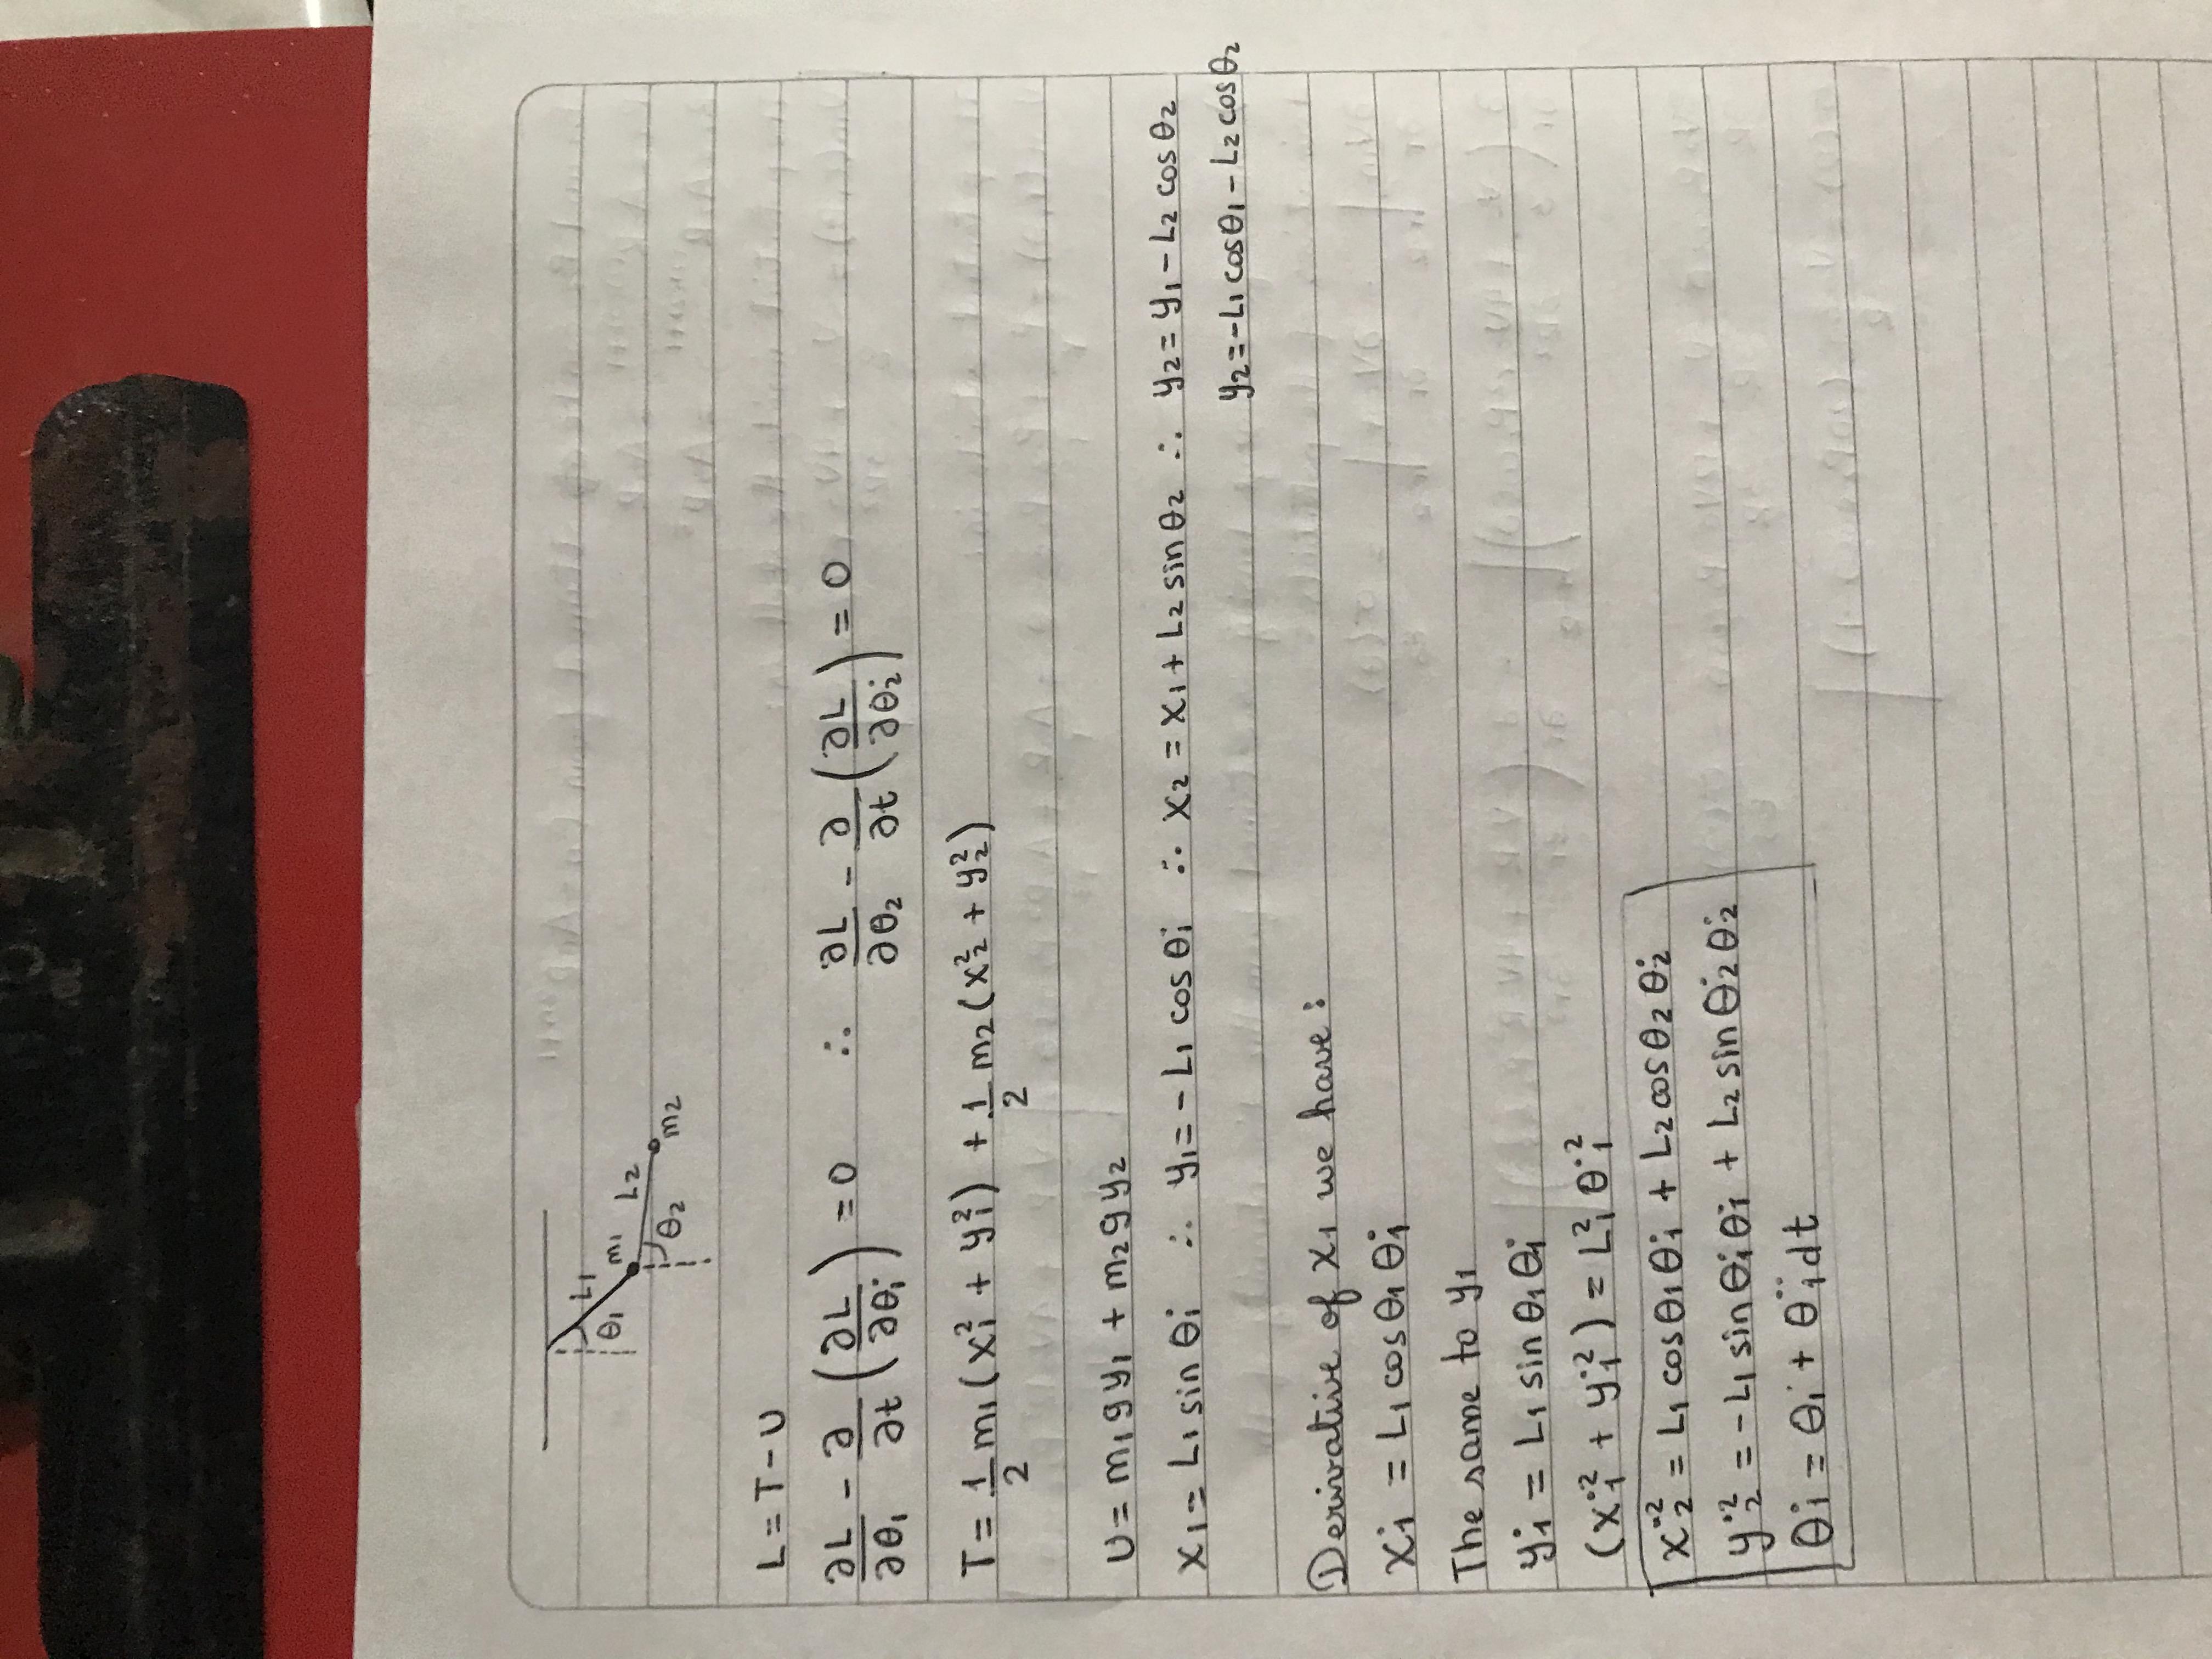 θ1 L1 m1 L2 θ2 m2
L = T - U
∂L/∂θ1 - ∂/∂t (∂L/∂θ̇1) = 0 ∴ ∂L/∂θ2 - ∂/∂t (∂L/∂θ̇2) = 0
T = 1/2 m1 (x1² + y1²) + 1/2 m2 (x2² + y2²)
U = m1 g y1 + m2 g y2
x1 = L1 sin θ̇1 ∴ y1 = - L1 cos θ̇1 ∴ x2 = x1 + L2 sin θ2 ∴ y2 = y1 - L2 cos θ2
y2 = -L1 cos θ1 - L2 cos θ2
Derivative of x1 we have:
ẋ1 = L1 cos θ1 θ̇1
The same to y1
ẏ1 = L1 sin θ1 θ̇1
(ẋ1² + ẏ1²) = L1² θ̇1²
ẋ2² = L1 cos θ1 θ̇1 + L2 cos θ2 θ̇2
ẏ2² = - L1 sin θ̇1 θ̇1 + L2 sin θ̇2 θ̇2
θ̇1 = θ̇1 + θ̈1 dt